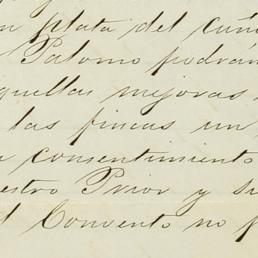 n plata del cuñ
Palomo podrán
quellas mejoras
las fincas un
consentimiento
estro Prior y su
l Convento no p